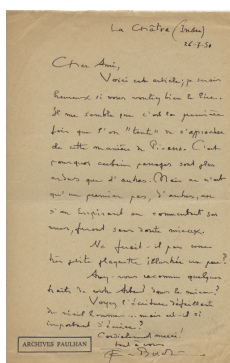 La Châtre (Indre)
26-7-50
Cher Ami,
Voici cet article; je serais
heureux si vous vouliez bien le lire.
Il me semble que c'est la première
fois que l'on "tente" de s'approcher
de cette manière de Picasso. C'est
pourquoi certains passages sont plus
ardus que d'autres. Mais ce n'est
qu'un premier pas, d'autres, en
s'en inspirant ou commentant son
feront sans doute mieux.
Ne ferait-il pas une
très petite plaquette illustrée un peu?
Avez-vous reconnu quelques
traits de votre dans le miroir?
Voyez l'écriture défaillante
du vieil homme... mais est-il si
important d'écrire?
Cordialement merci!
tout à vous
ARCHIVES PAULHAN